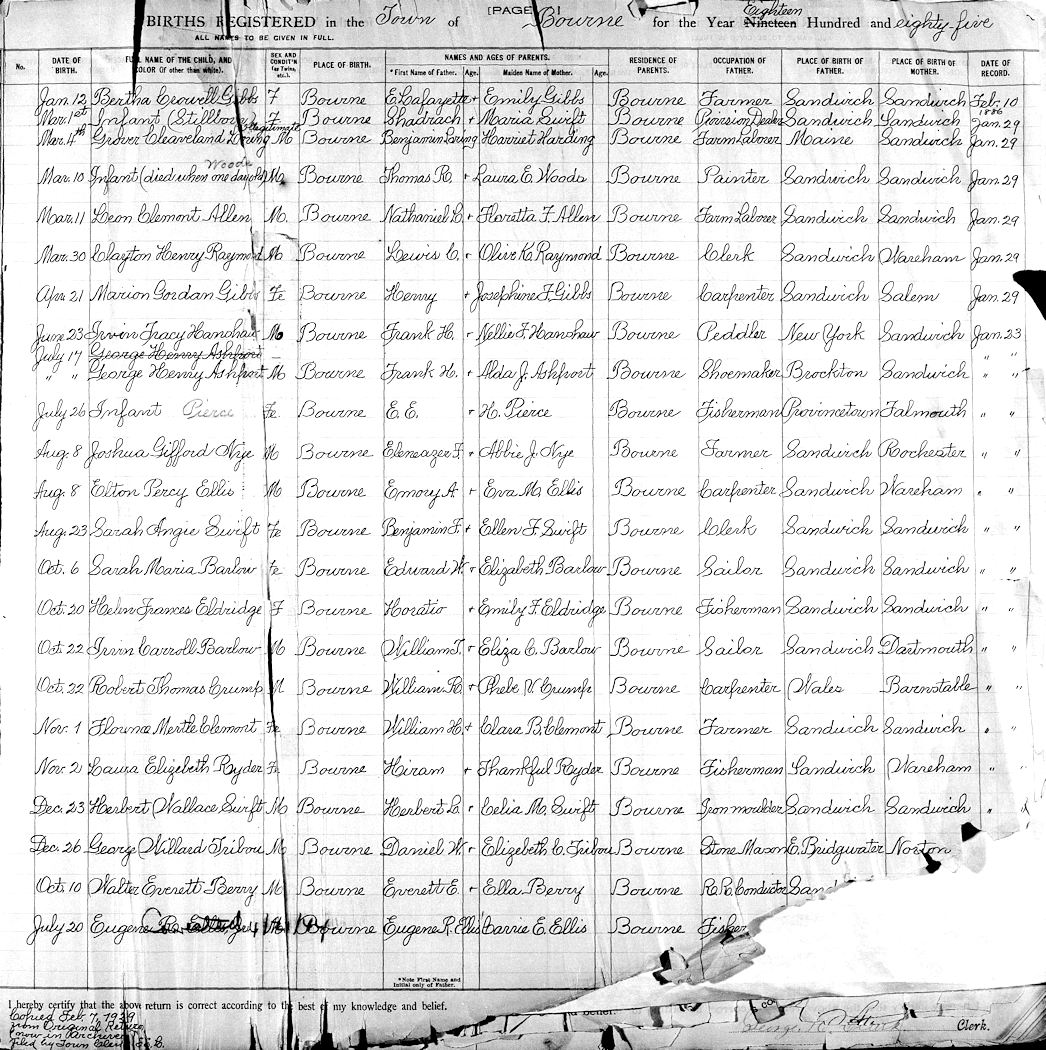 [PAGE ]
BIRTHS REGISTERED in the Town of Bourne for the Year Eighteen Nineteen Hundred and eighty five
ALL NAMES TO BE GIVEN IN FULL.
No. DATE OF BIRTH. FULL NAME OF THE CHILD, AND COLOR (if other than white). SEX AND CONDIT'N (as Twins, etc.). PLACE OF BIRTH. NAMES AND AGES OF PARENTS. *First Name of Father. Age. Maiden Name of Mother. Age. RESIDENCE OF PARENTS. OCCUPATION OF FATHER. PLACE OF BIRTH OF FATHER. PLACE OF BIRTH OF MOTHER. DATE OF RECORD.
Jan. 12 Bertha Crowell Gibbs F Bourne E. Lafayette + Emily Gibbs Bourne Farmer Sandwich Sandwich Feb. 10
1886
Mar. 1st Infant (Stillborn) F Bourne Shadrach + Maria Swift Bourne Provision Dealer Sandwich Sandwich Jan. 29
Illegitimate
Mar. 4th Grover Cleaveland Loring M Bourne Benjamin Loring + Harriet Harding Bourne Farm Laborer Maine Sandwich Jan. 29
Woods
Mar. 10 Infant (died when one day old) M Bourne Thomas R. + Laura E. Woods Bourne Painter Sandwich Sandwich Jan. 29
Mar. 11 Leon Clemont Allen M. Bourne Nathaniel L. + Floretta F. Allen Bourne Farm Laborer Sandwich Sandwich Jan. 29
Mar. 30 Clayton Henry Raymond M Bourne Lewis C. + Olive K. Raymond Bourne Clerk Sandwich Wareham Jan. 29
Apr. 21 Marion Gordan Gibbs Fe Bourne Henry + Josephine F. Gibbs Bourne Carpenter Sandwich Salem Jan. 29
June 23 Irvin Tracy Hanshaw M Bourne Frank H. + Nellie F. Hanshaw Bourne Peddler New York Sandwich Jan. 23
July 17 George Henry Ashport — " "
" " George Henry Ashport M Bourne Frank H. + Alda J. Ashport Bourne Shoemaker Brockton Sandwich " "
July 26 Infant Pierce Fe Bourne E. E. + H. Pierce Bourne Fisherman Provincetown Falmouth " "
Aug. 8 Joshua Gifford Nye M Bourne Ebeneazer F. + Abbie J. Nye Bourne Farmer Sandwich Rochester " "
Aug. 8 Elton Percy Ellis M Bourne Emory A. + Eva M. Ellis Bourne Carpenter Sandwich Wareham " "
Aug. 23 Sarah Angie Swift Fe Bourne Benjamin F. + Ellen F. Swift Bourne Clerk Sandwich Sandwich " "
Oct. 6 Sarah Maria Barlow Fe Bourne Edward W. + Elizabeth Barlow Bourne Sailor Sandwich Sandwich " "
Oct. 20 Helen Frances Eldridge F Bourne Horatio + Emily F. Eldridge Bourne Fisherman Sandwich Sandwich " "
Oct. 22 Irvin Carroll Barlow M Bourne William T. + Eliza C. Barlow Bourne Sailor Sandwich Dartmouth " "
Oct. 22 Robert Thomas Crump M Bourne William R. + Phebe V. Crump Bourne Carpenter Wales Barnstable " "
Nov. 1 Florence Mertle Clemont Fe Bourne William H. + Clara B. Clemont Bourne Farmer Sandwich Sandwich " "
Nov. 2 Laura Elizabeth Ryder Fe Bourne Hiram + Thankful Ryder Bourne Fisherman Sandwich Wareham " "
Dec. 23 Herbert Wallace Swift M Bourne Herbert L. + Celia M. Swift Bourne Iron moulder Sandwich Sandwich "
Dec. 26 George Willard Tribou M Bourne Daniel W. + Elizabeth C. Tribou Bourne Stone Mason E. Bridgwater Norton
Oct. 10 Walter Everett Berry M Bourne Everett E. + Ella Berry Bourne R.R. Conductor Sand
July 20 Eugene M Bourne Eugene R. Ellis Carrie E. Ellis Bourne Fisher
*Note First Name and Initial only of Father.
I hereby certify that the above return is correct according to the best of my knowledge and belief.
Copied Feb. 7, 1939
from Original Return
now in Archives
filed by Town Clerk
Clerk.